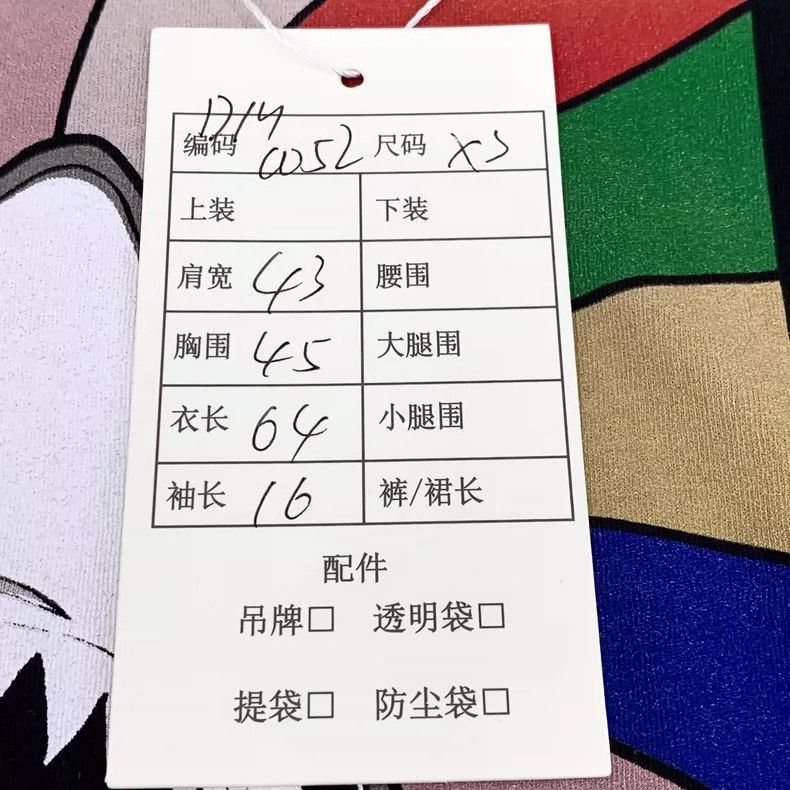 编码 1214 0052 尺码 XS
上装 下装
肩宽 43 腰围
胸围 45 大腿围
衣长 64 小腿围
袖长 16 裤/裙长
配件
吊牌□ 透明袋□
提袋□ 防尘袋□